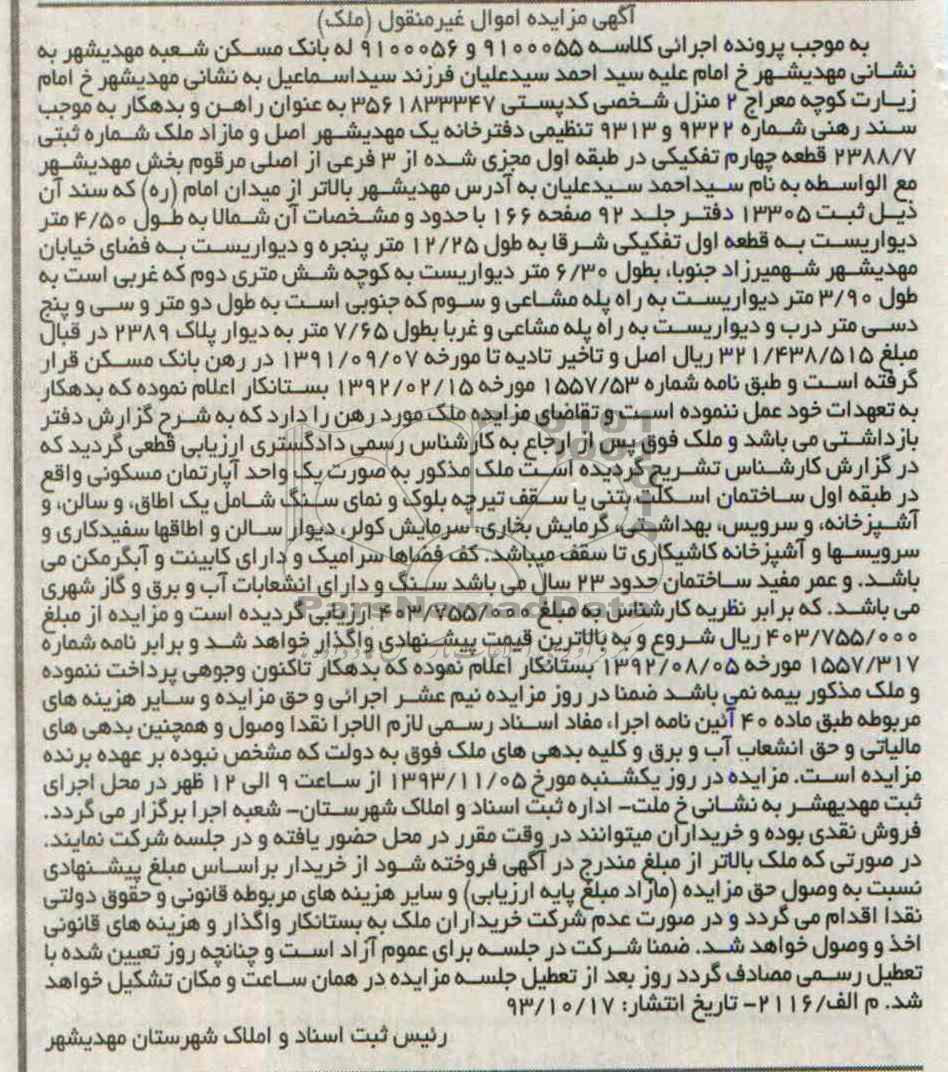 آگهی مزایده اموال غیرمنقول (ملک)
به موجب پرونده اجرائی کلاسه ۹۱۰۰۰۵۵ و ۹۱۰۰۰۵۶ له بانک مسکن شعبه مهدیشهر به
نشانی مهدیشهر خ امام علیه سید احمد سیدعلیان فرزند سیداسماعیل به نشانی مهدیشهر خ امام
زیارت کوچه معراج ۲ منزل شخصی کدپستی ۳۵۶۱۸۳۳۳۴۷ به عنوان راهن و بدهکار به موجب
سند رهنی شماره ۹۳۲۲ و ۹۳۱۳ تنظیمی دفترخانه یک مهدیشهر اصل و مازاد ملک شماره ثبتی
۲۳۸۸/۷ قطعه چهارم تفکیکی در طبقه اول مجزی شده از ۳ فرعی از اصلی مرقوم بخش مهدیشهر
مع الواسطه به نام سیداحمد سیدعلیان به آدرس مهدیشهر بالاتر از میدان امام (ره) که سند آن
ذیل ثبت ۱۳۳۰۵ دفتر جلد ۹۲ صفحه ۱۶۶ با حدود و مشخصات آن شمالا به طول ۴/۵۰ متر
دیواریست به قطعه اول تفکیکی شرقا به طول ۱۲/۲۵ متر پنجره و دیواریست به فضای خیابان
مهدیشهر شهمیرزاد جنوبا، بطول ۶/۳۰ متر دیواریست به کوچه شش متری دوم که غربی است به
طول ۳/۹۰ متر دیواریست به راه پله مشاعی و سوم که جنوبی است به طول دو متر و سی و پنج
دسی متر درب و دیواریست به راه پله مشاعی و غربا بطول ۷/۶۵ متر به دیوار پلاک ۲۳۸۹ در قبال
مبلغ ۳۲۱/۴۳۸/۵۱۵ ریال اصل و تاخیر تادیه تا مورخه ۱۳۹۱/۰۹/۰۷ در رهن بانک مسکن قرار
گرفته است و طبق نامه شماره ۱۵۵۷/۵۳ مورخه ۱۳۹۲/۰۲/۱۵ بستانکار اعلام نموده که بدهکار
به تعهدات خود عمل ننموده است و تقاضای مزایده ملک مورد رهن را دارد که به شرح گزارش دفتر
بازداشتی می باشد و ملک فوق پس از ارجاع به کارشناس رسمی دادگستری ارزیابی قطعی گردید که
در گزارش کارشناس تشریح گردیده است ملک مذکور به صورت یک واحد آپارتمان مسکونی واقع
در طبقه اول ساختمان اسکلت بتنی با سقف تیرچه بلوک و نمای سنگ شامل یک اطاق، و سالن، و
آشپزخانه، و سرویس، بهداشتی، گرمایش بخاری، سرمایش کولر، دیوار سالن و اطاقها سفیدکاری و
سرویسها و آشپزخانه کاشیکاری تا سقف میباشد. کف فضاها سرامیک و دارای کابینت و آبگرمکن می
باشد. و عمر مفید ساختمان حدود ۲۳ سال می باشد سنگ و دارای انشعابات آب و برق و گاز شهری
می باشد. که برابر نظریه کارشناس به مبلغ ۴۰۳/۷۵۵/۰۰۰ ارزیابی گردیده است و مزایده از مبلغ
۴۰۳/۷۵۵/۰۰۰ ریال شروع و به بالاترین قیمت پیشنهادی واگذار خواهد شد و برابر نامه شماره
۱۵۵۷/۳۱۷ مورخه ۱۳۹۲/۰۸/۰۵ بستانکار اعلام نموده که بدهکار تاکنون وجوهی پرداخت ننموده
و ملک مذکور بیمه نمی باشد ضمنا در روز مزایده نیم عشر اجرائی و حق مزایده و سایر هزینه های
مربوطه طبق ماده ۴۰ آئین نامه اجراء مفاد اسناد رسمی لازم الاجرا نقدا وصول و همچنین بدهی های
مالیاتی و حق انشعاب آب و برق و کلیه بدهی های ملک فوق به دولت که مشخص نبوده بر عهده برنده
مزایده است. مزایده در روز یکشنبه مورخ ۱۳۹۳/۱۱/۰۵ از ساعت ۹ الی ۱۲ ظهر در محل اجرای
ثبت مهدیهشر به نشانی خ ملت- اداره ثبت اسناد و املاک شهرستان- شعبه اجرا برگزار می گردد.
فروش نقدی بوده و خریداران میتوانند در وقت مقرر در محل حضور یافته و در جلسه شرکت نمایند.
در صورتی که ملک بالاتر از مبلغ مندرج در آگهی فروخته شود از خریدار براساس مبلغ پیشنهادی
نسبت به وصول حق مزایده (مازاد مبلغ پایه ارزیابی) و سایر هزینه های مربوطه قانونی و حقوق دولتی
نقدا اقدام می گردد و در صورت عدم شرکت خریداران ملک به بستانکار واگذار و هزینه های قانونی
اخذ و وصول خواهد شد. ضمنا شرکت در جلسه برای عموم آزاد است و چنانچه روز تعیین شده با
تعطیل رسمی مصادف گردد روز بعد از تعطیل جلسه مزایده در همان ساعت و مکان تشکیل خواهد
شد. م الف/۲۱۱۶- تاریخ انتشار: ۹۳/۱۰/۱۷
رئیس ثبت اسناد و املاک شهرستان مهدیشهر